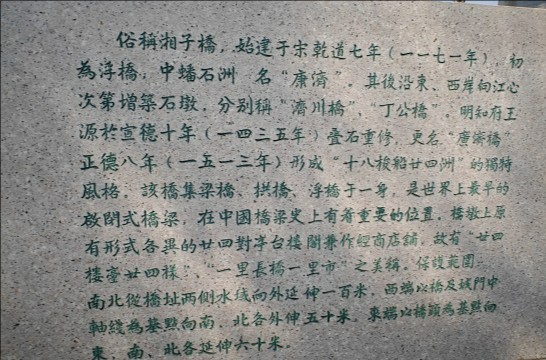 俗稱湘子橋，始建于宋乾道七年（一一七一年），初
為浮橋，中蟠石洲 名“康濟”。其後沿東、西岸向江心
次第增築石墩，分別稱“濟川橋”、“丁公橋”。明知府王
源於宣德十年（一四三五年）叠石重修，更名“廣濟橋”
正德八年（一五一三年）形成“十八梭船廿四洲”的獨特
風格。該橋集梁橋、拱橋、浮橋于一身，是世界上最早的
啟閉式橋梁，在中國橋梁史上有着重要的位置。橋墩上原
有形式各異的廿四對亭台樓閣兼作經商店舖，故有“廿四
樓臺廿四樣”、“一里長橋一里市”之美稱。保護範圍：
南北從橋址两側水域向外延伸一百米，西端以橋及城門中
軸綫為基點向南、北各外伸五十米，東端以橋頭為基點向
東、南、北各延伸六十米。